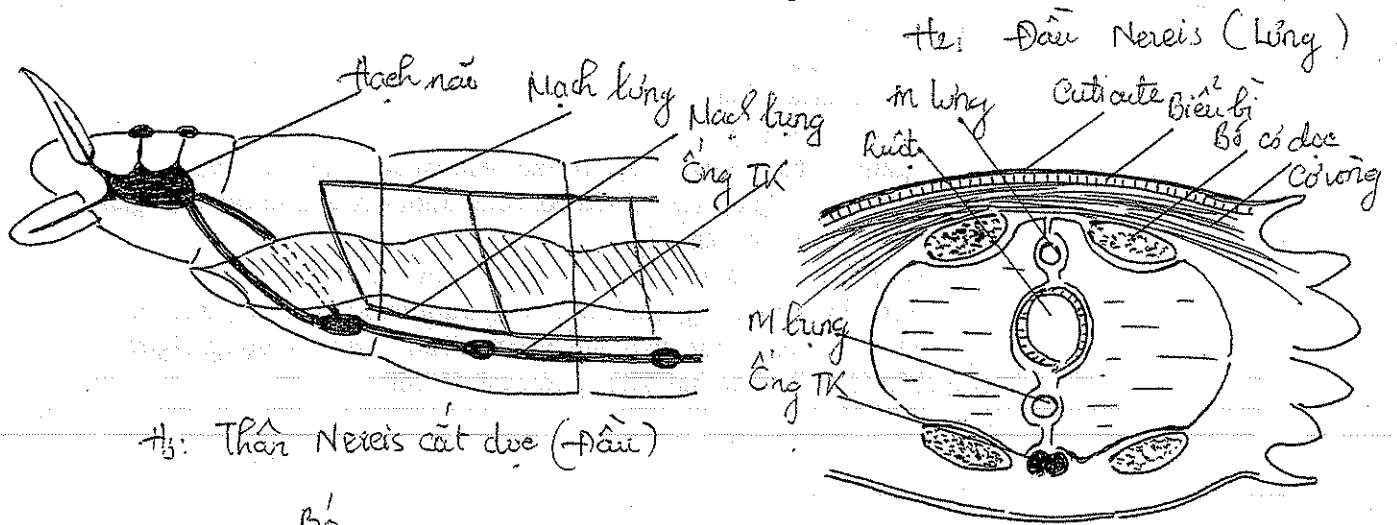 H2: Đầu Nereis (Lưng)
Hạch não
Mạch lưng
Mạch bụng
Ống TK
M lưng
Ruột
Cuticute
Biểu bì
Bó cơ dọc
Cơ vòng
M bụng
Ống TK
H3: Thân Nereis cắt dọc (Đầu)
Bó